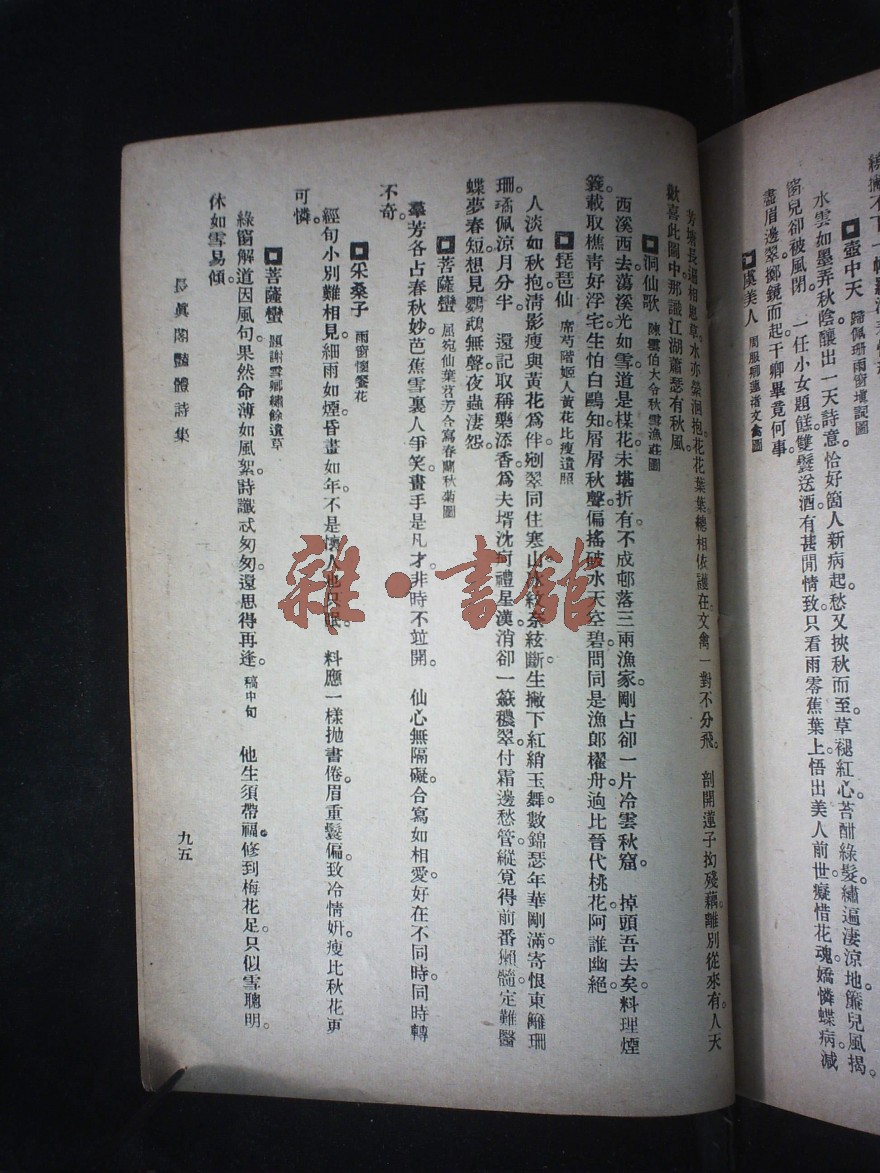 壺中天 歸佩珊雨窗填詞圖
水雲如墨弄秋陰釀出一天詩意。恰好箇人新病起。愁又挾秋而至。草褪紅心。苔酣綠髮。繡遍淒涼地。簾兒風揭。
窗兒卻被風閉。 一任小女題餻。雙鬟送酒。有甚閒情致。只看雨零蕉葉上。悟出美人前世。癡惜花魂。嬌憐蝶病。減
盡眉邊翠。擲鏡而起。干卿畢竟何事。
虞美人 周服卿蓮渚文禽圖
芳塘長遍相思草。水亦縈洄抱。花花葉葉總相依。護在文禽一對不分飛。 剖開蓮子拗殘藕。離別從來有。人天
歡喜此圖中。那識江湖蕭瑟有秋風。
洞仙歌 陳雲伯大令秋雪漁莊圖
西溪西去。蕩溪光如雪。道是楳花未堪折。有不成邨落。三兩漁家。剛占卻一片冷雲秋窟。 掉頭吾去矣。料理煙
簑。載取樵靑好浮宅。生怕白鷗知。屑屑秋聲。偏搖破水天空碧。問同是漁郎櫂舟。迴比晉代桃花。阿誰幽絕。
琵琶仙 席芍階姬人黃花比瘦遺照
人淡如秋。抱清影瘦與黃花爲伴。剜翠同住寒山。水紋奈絃斷。生撇下紅綃玉舞。數錦瑟年華剛滿。寄恨東籬。珊
珊璚佩。涼月分半。 還記取稱藥添香。爲夫壻沈疴禮星漢。消卻一簇穠翠。付霜邊愁管。縱覓得前番獺髓。定難醫
蝶夢春短。想見鸚鵡無聲。夜蟲淒怨。
菩薩蠻 屈宛仙葉苕芳合寫春蘭秋菊圖
羣芳各占春秋妙。芭蕉雪裏人爭笑。畫手是凡才。非時不竝開。 仙心無隔礙。合寫如相愛。好在不同時。同時轉
不奇。
采桑子 雨窗懷鬘花
經旬小別難相見。細雨如煙。昏晝如年。不是懷人也只眠。 料應一樣拋書倦。眉重鬟偏。致冷情妍。瘦比秋花更
可憐。
菩薩蠻 題謝雪鄉繡餘遺草
綠窗解道因風句。果然命薄如風絮。詩讖忒匆匆。還思得再逢。稿中句 他生須帶福。修到梅花足。只似雪聰明。
休如雪易傾。
長眞閣豔體詩集
九五
雜·書館